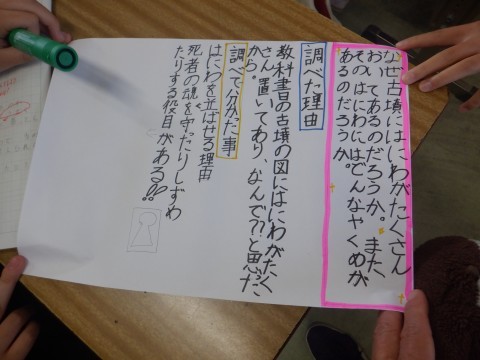 なぜ古墳にはにわがたくさん
おいてあるのだろうか。また、
そのはにわにはどんなやくめが
あるのだろうか。
調べた理由
教科書の古墳の図にはにわがたく
さん置いてあり、なんで??と思った
から。
調べて分かった事
はにわを並ばせる理由
死者の魂を守ったりしずめ
たりする役目がある!!